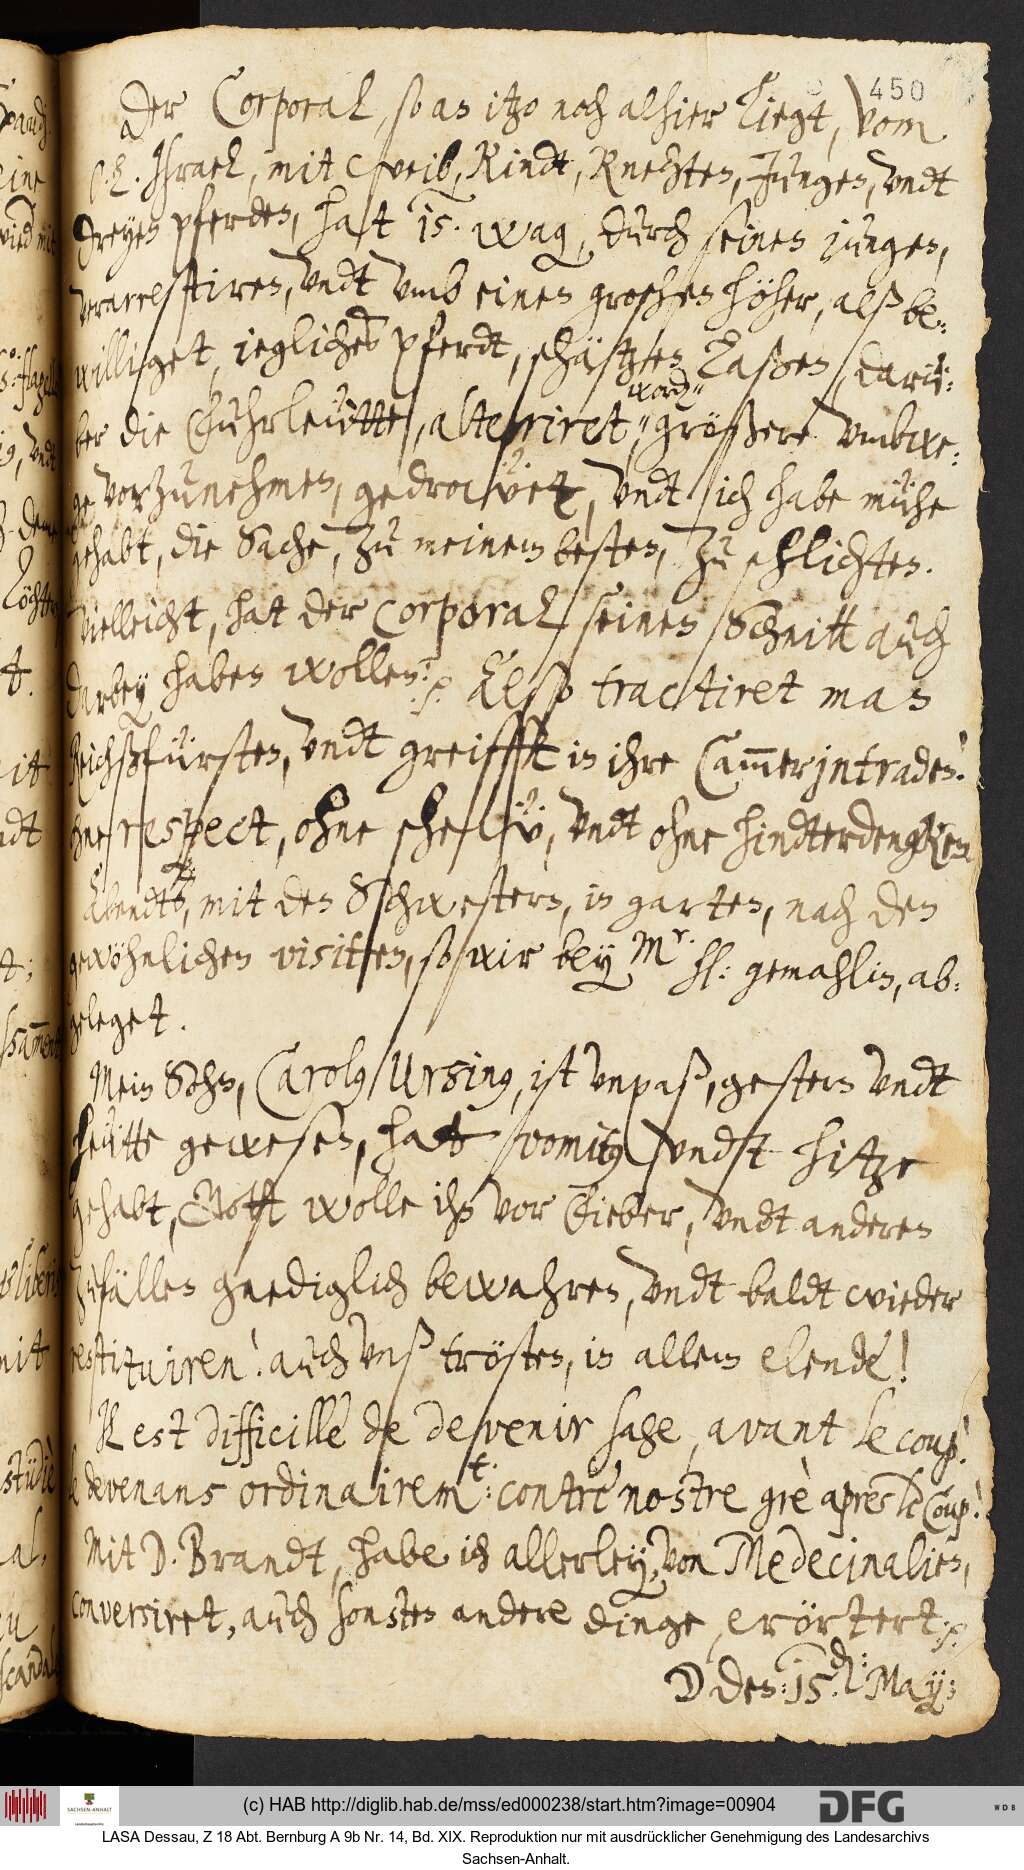 450
Der Corporal, so an itzo noch alhier liegt, vom
C. L. Israel, mit weib, Kindt, Knechten, Jungen, vndt
dreyen pferden, hat 15. wag, durch seinen jungen,
verarrestiren, vndt vmb einen groschen höher, alß be-
williget, iegliches pferdt, schätzen laßen, darü-
ber die Fuhrleütte, alteriret, word: größere vmbwe-
ge vorzunehmen, gedrowet, vndt ich habe mühe
gehabt, die Sache, zu meinem besten, zu schlichten.
Vielleicht, hat der Corporal seinen Schnitt auch
darbey haben wollen. p Also tractiret man
Reichsfürsten, vndt greifft in ihre Cammerjntraden!
ohne respect, ohne schew, vndt ohne hindterdengken
Abendts, mit den Schwestern, in garten, nach den
gewöhnlichen visitten, so wir bey Mr. hl: gemahlin, ab-
geleget.
Mein Sohn, Carolus Ursinus, ist vnpaß, gestern vndt
heütte gewesen, hat vomitus vndt hitze
gehabt, Gott wolle ihn vor Fieber, vndt anderen
zufällen gnediglich bewahren, vndt baldt wieder
restituiren! auch vnß trösten, in allem elende!
Il est difficille de devenir sage, avant le coup!
le devenans ordinairemt: contre nostre grè apres le Coup!
Mit D. Brandt, habe ich allerley, von Medecinalien,
conversiret, auch sonsten andere dinge, erörtert. p
D den: 15. d: May:
(c) HAB http://diglib.hab.de/mss/ed000238/start.htm?image=00904
SACHSEN-ANHALT
DFG
WDB
LASA Dessau, Z 18 Abt. Bernburg A 9b Nr. 14, Bd. XIX. Reproduktion nur mit ausdrücklicher Genehmigung des Landesarchivs
Sachsen-Anhalt.